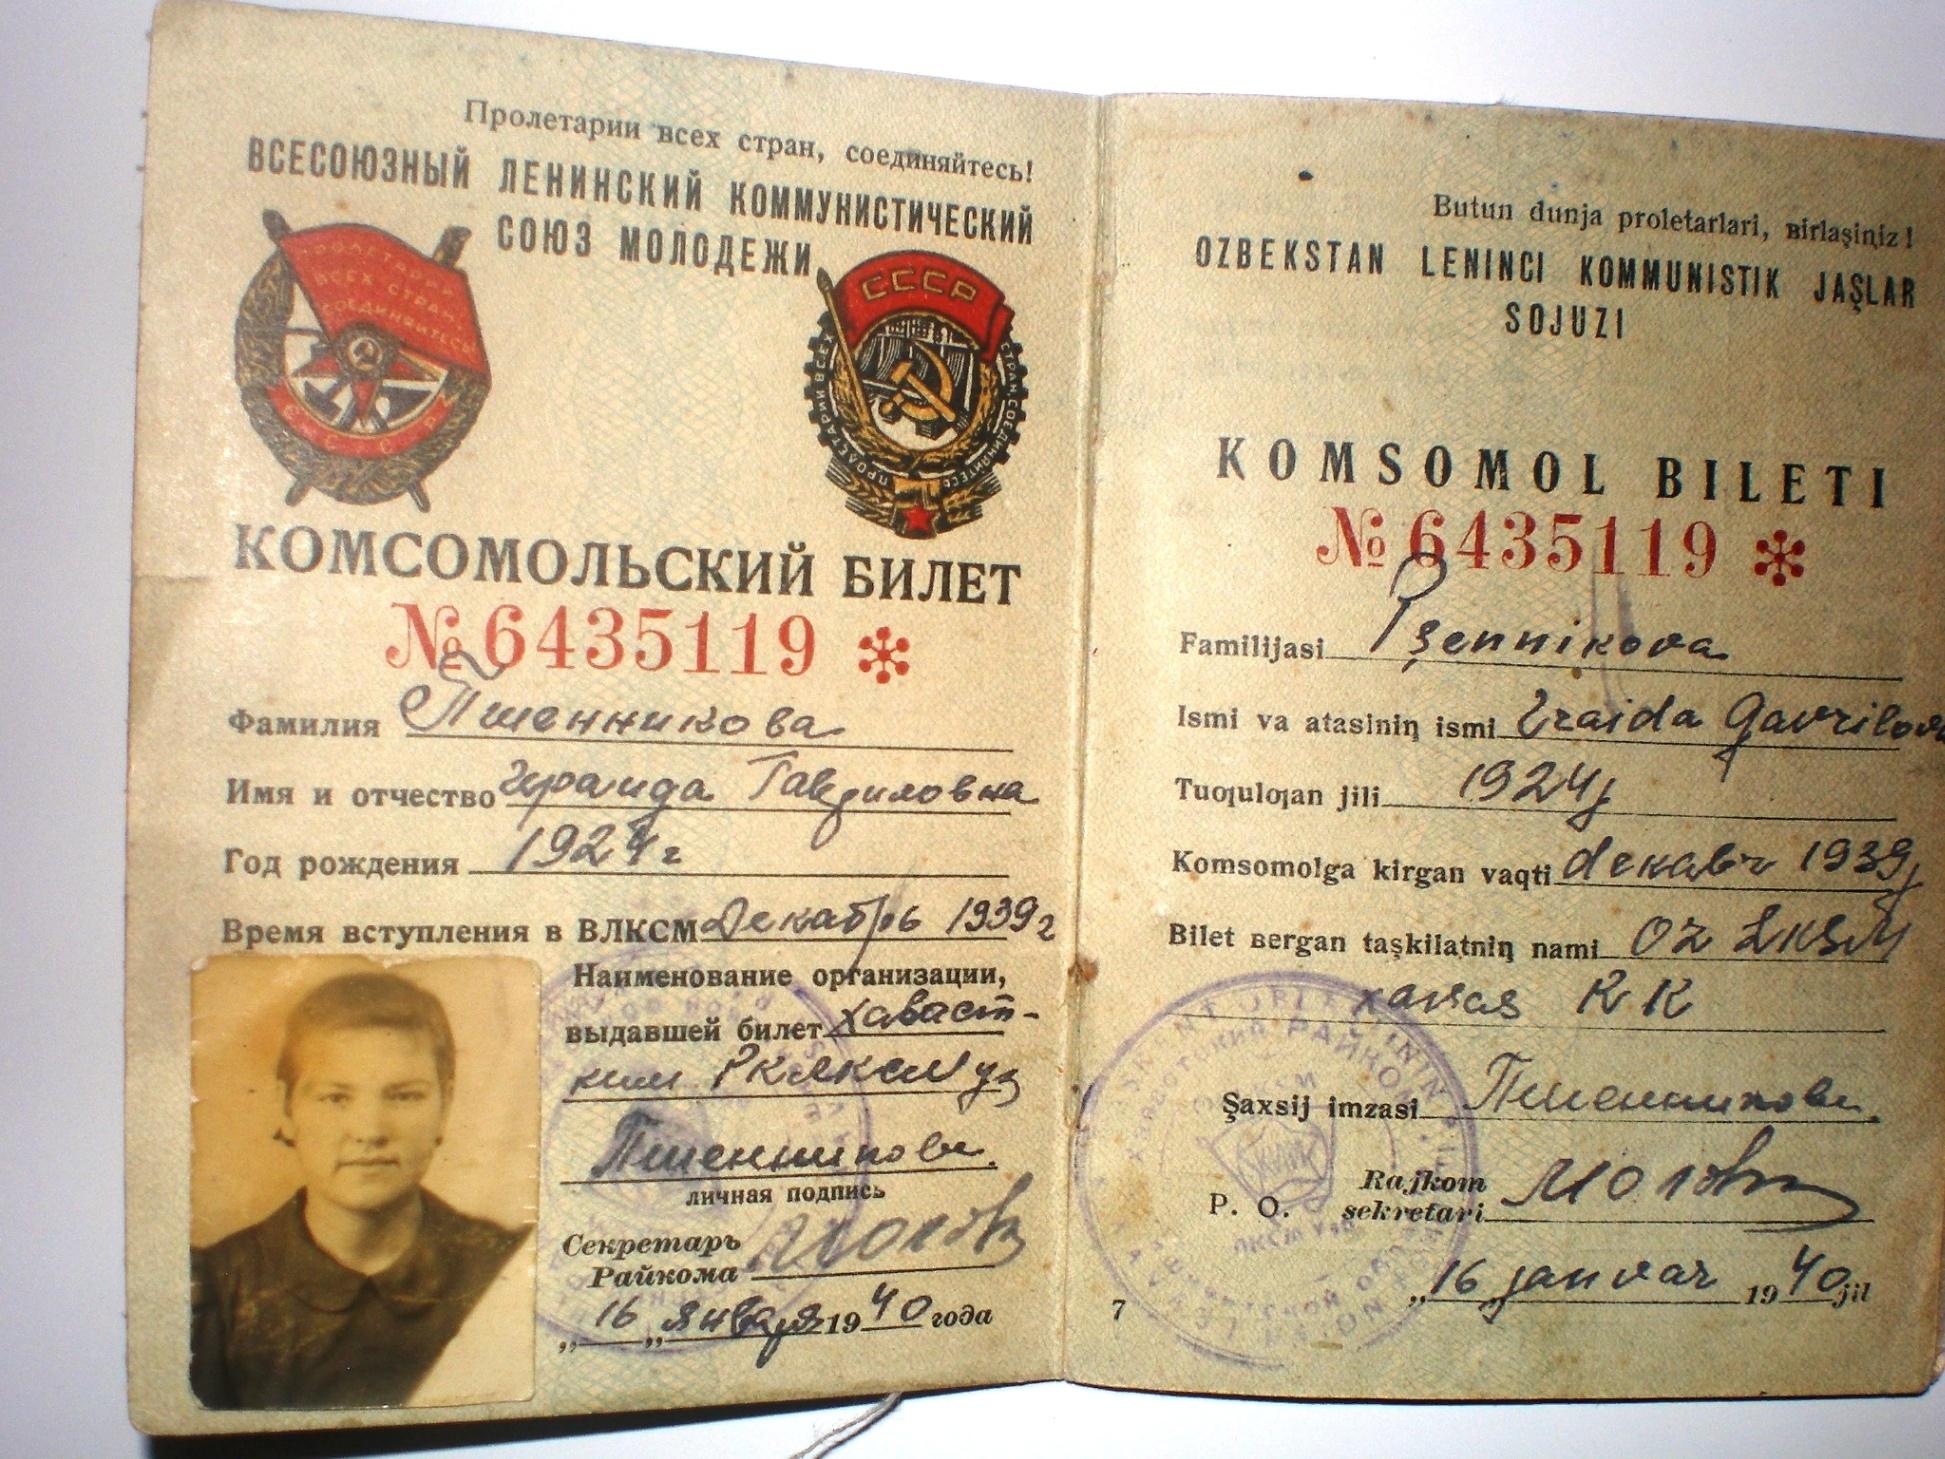 Пролетарии всех стран, соединяйтесь!
ВСЕСОЮЗНЫЙ ЛЕНИНСКИЙ КОММУНИСТИЧЕСКИЙ
СОЮЗ МОЛОДЕЖИ
ПРОЛЕТАРИИ
ВСЕХ СТРАН,
СОЕДИНЯЙТЕСЬ
СССР
СССР
ПРОЛЕТАРИИ ВСЕХ СТРАН, СОЕДИНЯЙТЕСЬ
КОМСОМОЛЬСКИЙ БИЛЕТ
№ 6435119
Фамилия Пшенникова
Имя и отчество Ираида Гавриловна
Год рождения 1924 г
Время вступления в ВЛКСМ Декабрь 1939 г
Наименование организации,
выдавшей билет Хаваст-
ким РКЛКСМ Уз
Пшенникова
личная подпись
Секретарь
Райкома
„16„ января 1940 года
Butun dunja proletarlari, ʙirlaşiꞑiz!
OZBEKSTAN LENINCI KOMMUNISTIK JAŞLAR
SOJUZI
KOMSOMOL BILETI
№ 6435119
Familijasi Pşennikova
Ismi va atasiniꞑ ismi Iraida Gavrilovna
Tuƣulƣan jili 1924 j
Komsomolga kirgan vaqti декабr 1939 j
Bilet ʙergan taşkilatniꞑ nami OZ LKSM
xavas RK
Şaxsij imzasi Пшенникова
P. O. Rajkom
sekretari
„16„ janvar 1940 jil
7